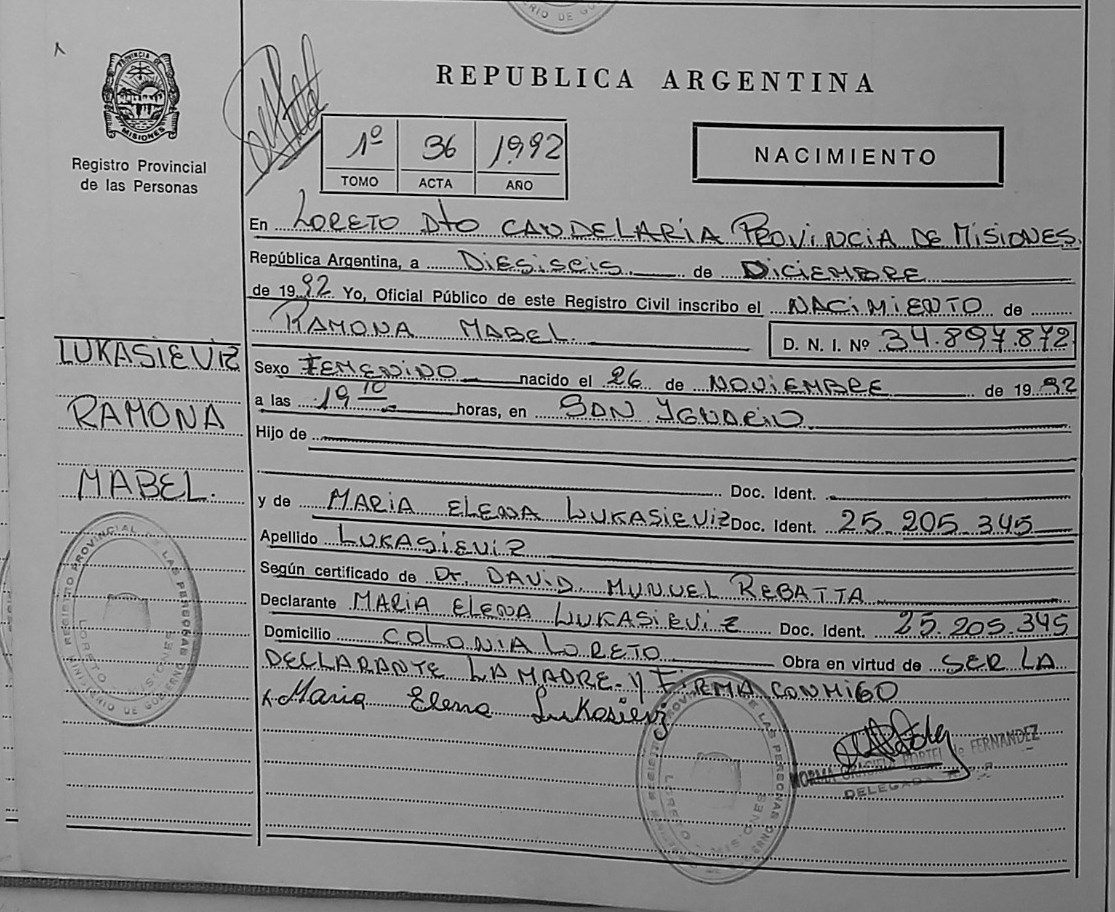 RIO DE GO
PROVINCIA DE MISIONES
Registro Provincial
de las Personas
REPUBLICA ARGENTINA
1º 36 1992
TOMO ACTA AÑO
NACIMIENTO
En LORETO Dto CANDELARIA PROVINCIA DE MISIONES
República Argentina, a DIESISEIS de DICIEMBRE
de 1992 Yo, Oficial Público de este Registro Civil inscribo el NACIMIENTO de
RAMONA MABEL D. N. I. Nº 34.897.872
LUKASIEVIZ
RAMONA
MABEL.
Sexo FEMENINO nacido el 26 de NOVIEMBRE de 1992
a las 19 10 horas, en SAN IGNACIO
Hijo de
Doc. Ident.
y de MARIA ELENA LUKASIEVIZ Doc. Ident. 25.205.345
Apellido LUKASIEVIZ
Según certificado de Dr. DAVID MUNUEL REBATTA
Declarante MARIA ELENA LUKASIEVIZ Doc. Ident. 25.205.345
Domicilio COLONIA LORETO Obra en virtud de SER LA
DECLARANTE LA MADRE Y FIRMA CONMIGO
Maria Elena Lukasievi
REGISTRO PROVINCIAL DE LAS PERSONAS
LORETO MISIONES
MINISTERIO DE GOBIERNO
LORETO - MISIONES
NORMA GRACIELA PORTEL de FERNANDEZ
DELEGADA